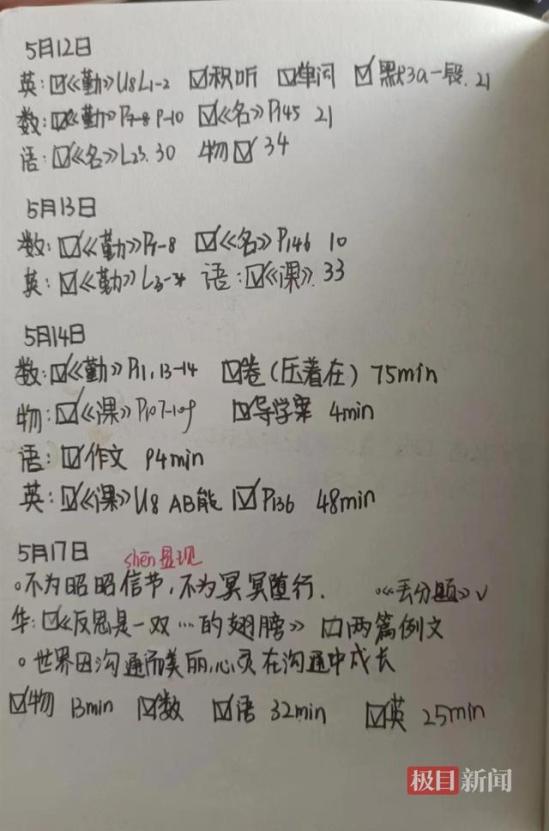 5月12日
英:☑《勤》U8L1-2 ☑积听 ☑单词 ☑默3a一段. 21
数:☑《勤》P7-8 9-10 ☑《名》P145 21
语:☑《名》L23. 30 物☑ 34
5月13日
数:☑《勤》P7-8 ☑《名》P146 10
英:☑《勤》L3-4 语:☑《课》. 33
5月14日
数:☑《勤》P11,13-14 ☑卷(压着在) 75min
物:☑《课》P107-109 ☑导学案 4min
语:☑作文 94min
英:☑《课》U8 AB能 ☑P136 48min
5月17日 shēn 显现
。不为昭昭信节,不为冥冥堕行. 《丢分题》√
华:☑《反思是一双…的翅膀》 口两篇例文
。世界因沟通而美丽,心灵在沟通中成长
☑物 13min ☑数 ☑语 32min ☑英 25min
极目新闻